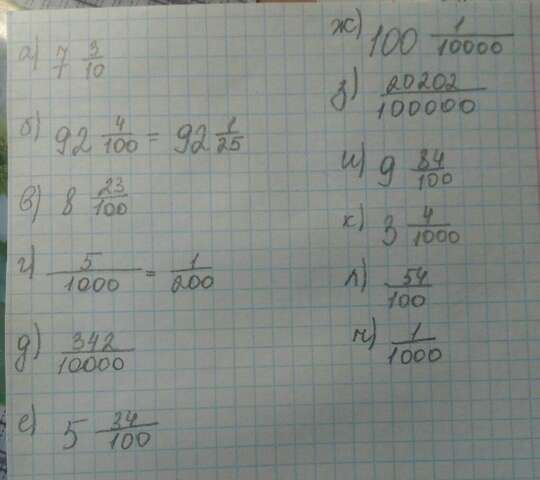 а) 7 3/10
б) 92 4/100 = 92 1/25
в) 8 23/100
г) 5/1000 = 1/200
д) 342/10000
е) 5 34/100
ж) 100 1/10000
з) 20202/100000
и) 9 84/100
к) 3 4/1000
л) 54/100
м) 1/1000